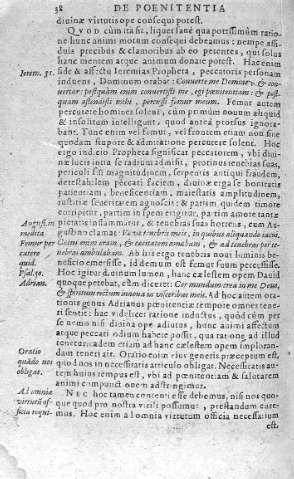 38 DE POENITENTIA
diuinæ virtutis ope consequi potest.
QVOD cùm ita sit, liquet sanè qua potissimùm ratio-
ne hunc animi motum consequi debeamus: nempe assi-
duis precibus & clamoribus ab eo petentes, qui solus
hanc mentem atque animum donare potest. Hac enim
Ierem. 31. side & affectu Ieremias Propheta, peccatoris personam
induens, Dominum orabat: Conuerte me Domine, & con-
uertar: postquam enim conuertisti me, egi poenitentiam: & post-
quam ostendisti mihi, percussi femur meum. Femur autem
percutere homines solent, cùm primùm nouum aliquid
& insolitum intelligunt, quod antea prorsus ignora-
bant. Tunc enim vel femur, vel frontem etiam non sine
quodam stupore & admiratione percutere solent. Hoc
ergo indicio Propheta significat peccatorem, vbi diui-
næ lucis intra se radium admisit, protinus tenebras suas,
periculi sui magnitudinem, serpentis antiqui fraudem,
detestabilem peccati faciem, diuinæ erga se bonitatis
patientiam, beneficentiam, maiestatis amplitudinem,
iustitiæ seueritatem agnoscit: & partim quidem timore
corripitur, partim in spem erigitur, partim amore tantæ
August. in pietatis inflammatur, & tenebras suas horrens, cum Au-
gustino clamat: Væ tenebris meis, in quibus aliquando iacui,
Femur per Coecus enim eram, & cæcitatem amabam, & ad tenebras per te-
cutere nebras ambulabam. Ab his ergo tenebris noui luminis be-
quid. neficio emersisse, id demum est femur suum percussisse.
Psal. 50. Hoc igitur diuinum lumen, hanc cælestem opem Dauid
Adrian. quoque petebat, cùm diceret: Cor mundum crea in me Deus,
& spiritum rectum innoua in visceribus meis. Ad hoc autem ora-
tionis genus Adrianus poenitentiæ tempore omnes tene-
ri sentit: hac videlicet ratione inductus, quòd cùm per
se nemo nisi diuina ope adiutus, hunc animi affectum
atque peccati odium habere possit, qua ratione ad illud
tenetur: eadem etiam ad hanc cælestem opem imploran-
Oratio dam teneri ait. Orationis enim eius generis præceptum est,
quãdo nos quod nos in necessitatis articulo obligat. Necessitatis au-
obliget. tem huius tempus est, vbi ad poenitentiam & salutarem
animi compunctionem adstringimur.
Ad omnia NEC hoc tamen contenti esse debemus, nisi nos quo-
virtutis of- que quod pro nostra virili possumus, præstandum cure-
ficia mus. Hoc enim ad omnia virtutum officia necessarium
est.